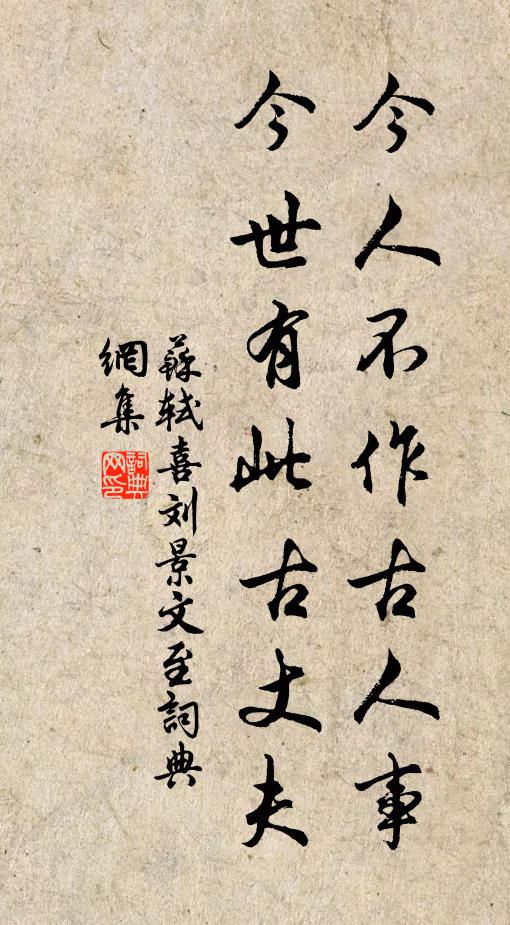 今人不作古人事
今世有此古丈夫
蘇軾喜刘景文至詞典
網集
詞典
网印